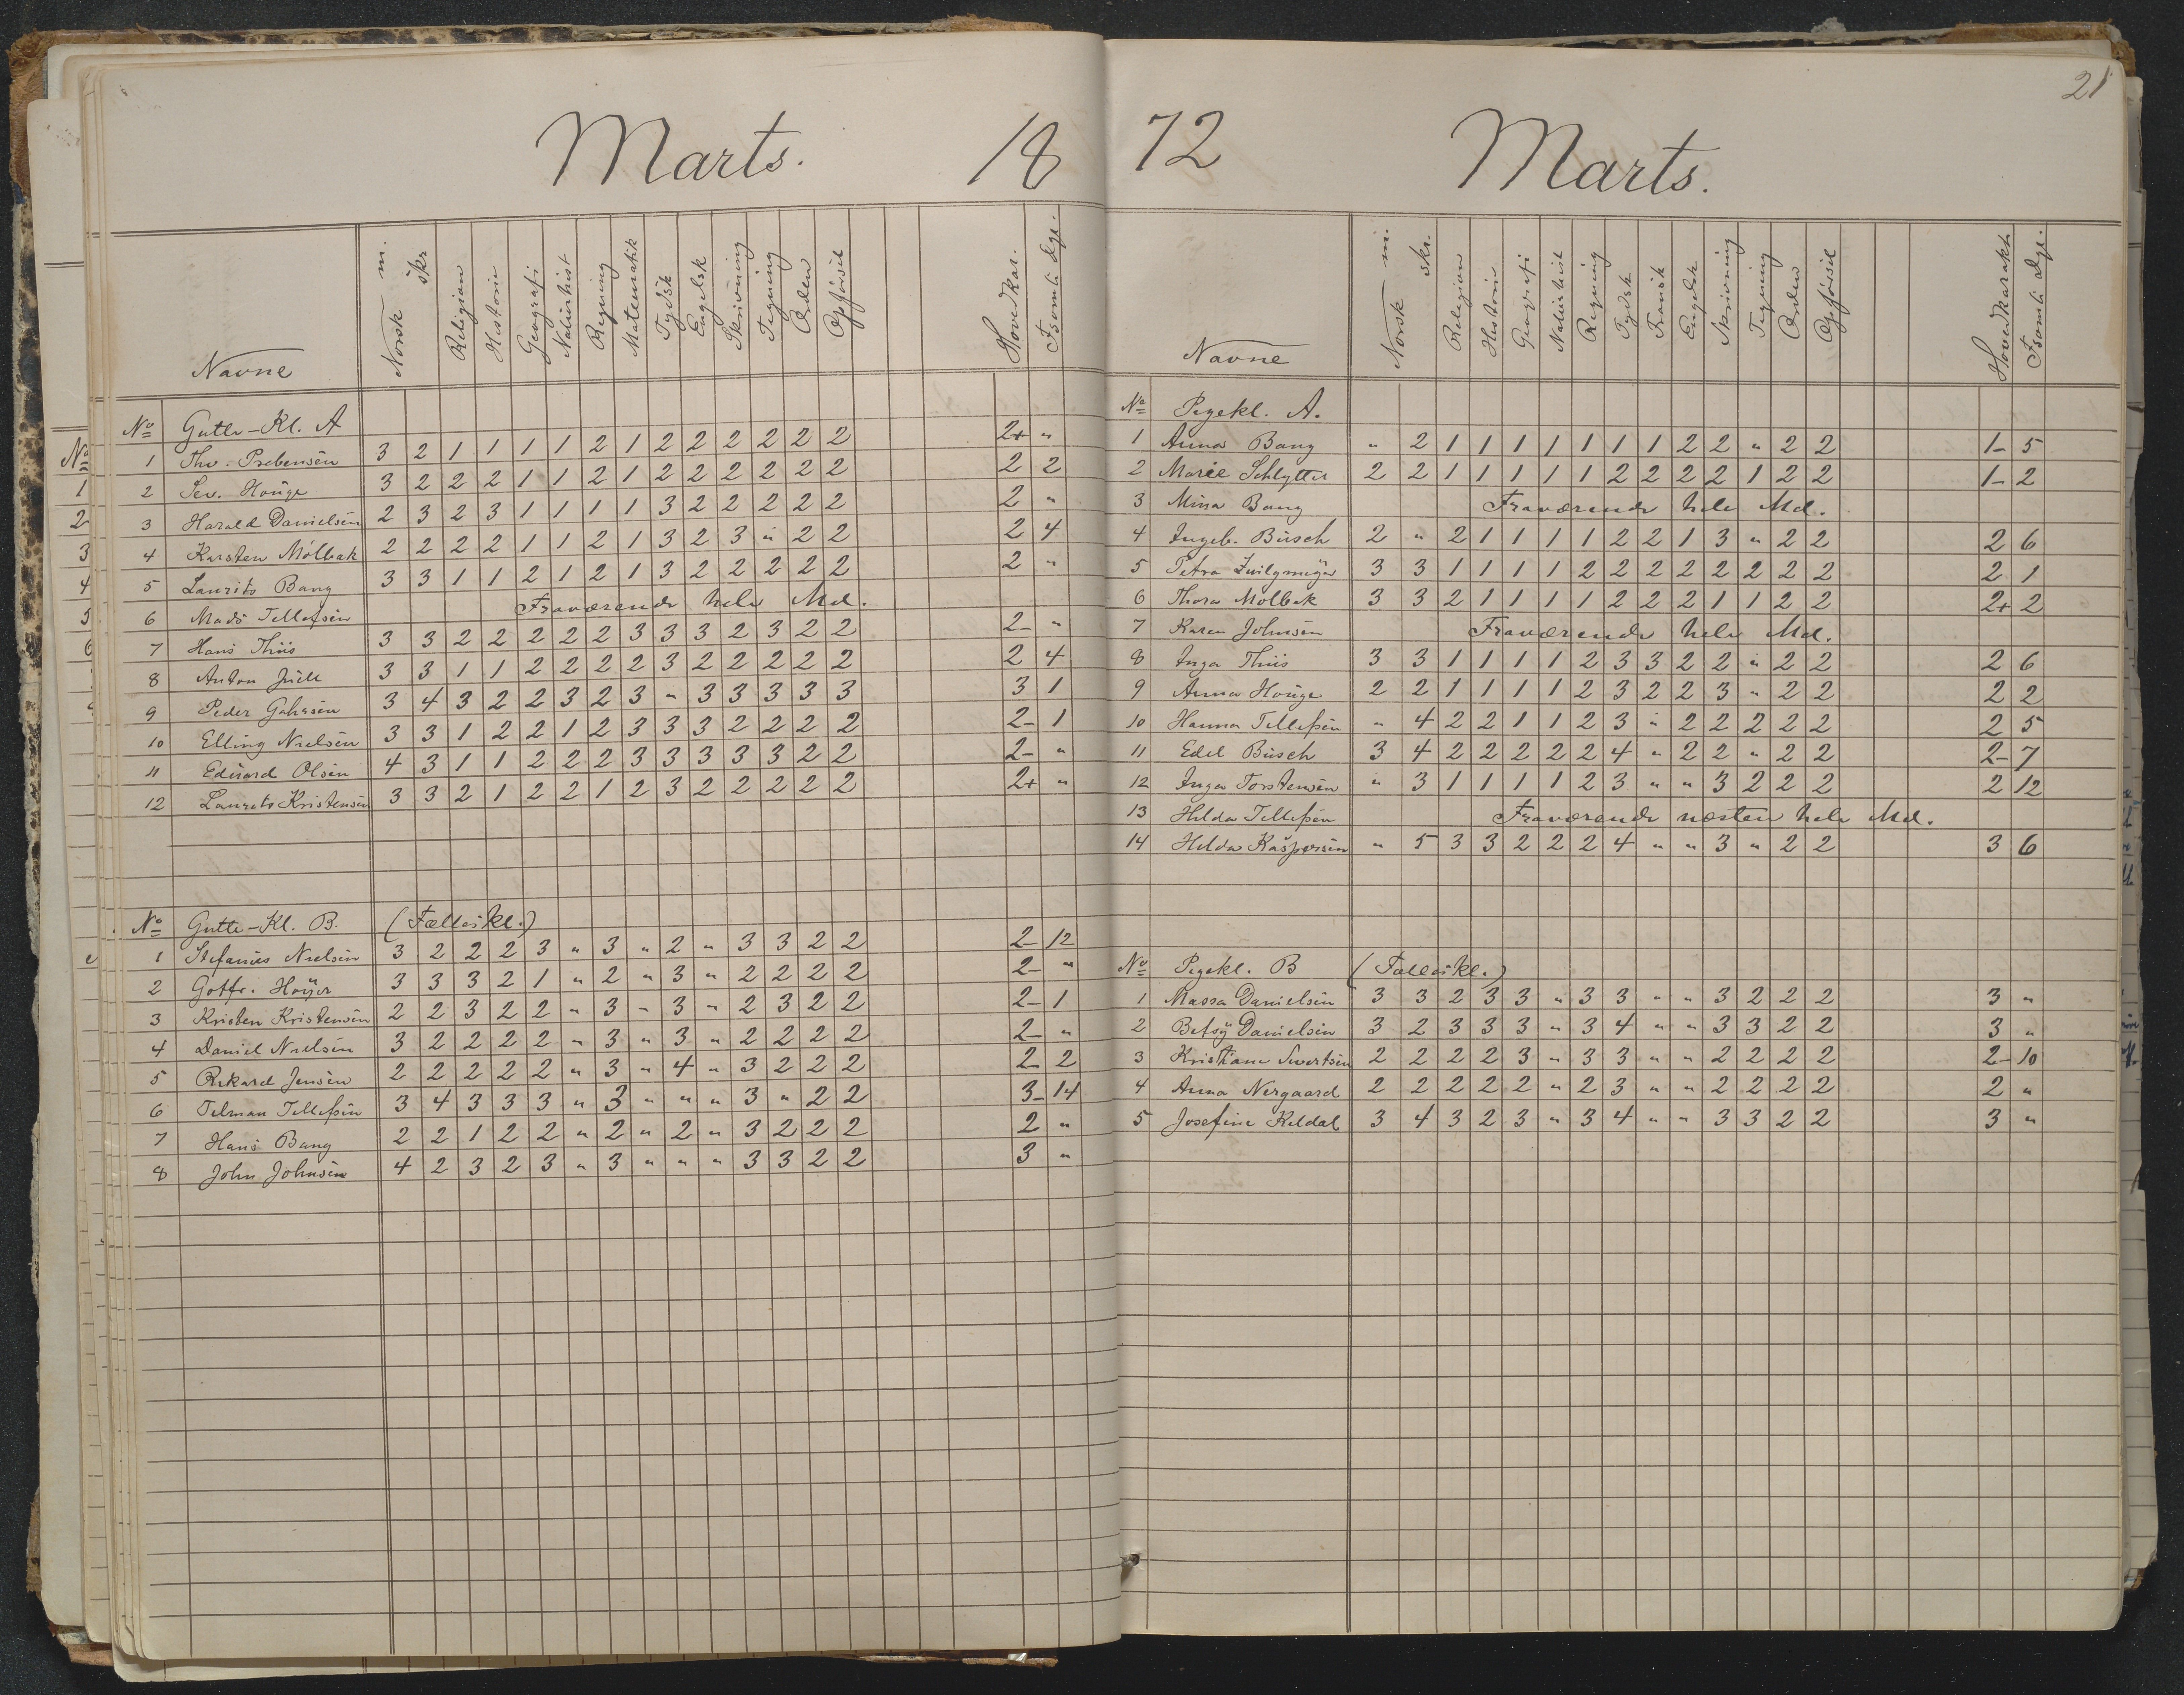 Marts. 18
Navne Norsk m. skr Religion Historie Geografi Naturhist Regning Matematik Tydsk Engelsk Skrivning Tegning Orden Opførsel Hovedkar. Fsomte dge.
No Gutte-Kl. A
1 Thv. Prebensen 3 2 1 1 1 1 2 1 2 2 2 2 2 2 2+ "
2 Sev. Houge 3 2 2 2 1 1 2 1 2 2 2 2 2 2 2 2
3 Harald Danielsen 2 3 2 3 1 1 1 1 3 2 2 2 2 2 2 "
4 Karsten Mølbak 2 2 2 2 1 1 2 1 3 2 3 " 2 2 2 4
5 Laurits Bang 3 3 1 1 2 1 2 1 3 2 2 2 2 2 2 "
6 Mads Tellefsen Fraværende hele Md.
7 Hans Thiis 3 3 2 2 2 2 2 3 3 3 2 3 2 2 2- "
8 Anton Juell 3 3 1 1 2 2 2 2 3 2 2 2 2 2 2 4
9 Peder Gahrsen 3 4 3 2 2 3 2 3 " 3 3 3 3 3 3 1
10 Elling Nielsen 3 3 1 2 2 1 2 3 3 3 2 2 2 2 2- 1
11 Edvard Olsen 4 3 1 1 2 2 2 3 3 3 3 3 2 2 2- "
12 Laurits Kristensen 3 3 2 1 2 2 1 2 3 2 2 2 2 2 2+ "
No Gutte-Kl. B. (Fælleskl.)
1 Stefanus Nielsen 3 2 2 2 3 " 3 " 2 " 3 3 2 2 2- 12
2 Gotfr. Høyer 3 3 3 2 1 " 2 " 3 " 2 2 2 2 2- "
3 Kristen Kristensen 2 2 3 2 2 " 3 " 3 " 2 3 2 2 2- 1
4 Daniel Nielsen 3 2 2 2 2 " 3 " 3 " 2 2 2 2 2- "
5 Rikard Jensen 2 2 2 2 2 " 3 " 4 " 3 2 2 2 2- 2
6 Telman Tellefsen 3 4 3 3 3 " 3 " " " 3 " 2 2 3- 14
7 Hans Bang 2 2 1 2 2 " 2 " 2 " 3 2 2 2 2 "
8 John Johnsen 4 2 3 2 3 " 3 " " " 3 3 2 2 3 "
21
72 Marts.
Navne Norsk m. skr. Religion Historie Geografi Naturhist Regning Tydsk Fransk Engelsk Skrivning Tegning Orden Opførsel Hovedkarakt. Fsomte dge.
No Pigekl. A.
1 Anna Bang " 2 1 1 1 1 1 1 1 2 2 " 2 2 1- 5
2 Marie Schlytter 2 2 1 1 1 1 1 2 2 2 2 1 2 2 1- 2
3 Mina Bang Fraværende hele Md.
4 Ingeb. Busch 2 " 2 1 1 1 1 2 2 1 3 " 2 2 2 6
5 Petra Zwilgmeyer 3 3 1 1 1 1 2 2 2 2 2 2 2 2 2 1
6 Thora Mølbak 3 3 2 1 1 1 1 2 2 2 1 1 2 2 2+ 2
7 Karen Johnsen Fraværende hele Md.
8 Inga Thiis 3 3 1 1 1 1 2 3 3 2 2 " 2 2 2 6
9 Anna Houge 2 2 1 1 1 1 2 3 2 2 3 " 2 2 2 2
10 Hanna Tellefsen " 4 2 2 1 1 2 3 " 2 2 2 2 2 2 5
11 Edel Busch 3 4 2 2 2 2 2 4 " 2 2 " 2 2 2- 7
12 Inga Torstensen " 3 1 1 1 1 2 3 " " 3 2 2 2 2 12
13 Hilda Tellefsen Fraværende næsten hele Md.
14 Hilda Kaspersen " 5 3 3 2 2 2 4 " " 3 " 2 2 3 6
No Pigekl. B (Fælleskl.)
1 Massa Danielsen 3 3 2 3 3 " 3 3 " " 3 2 2 2 3 "
2 Betsy Danielsen 3 2 3 3 3 " 3 4 " " 3 3 2 2 3 "
3 Kristiane Sivertsen 2 2 2 2 3 " 3 3 " " 2 2 2 2 2- 10
4 Anna Nergaard 2 2 2 2 2 " 2 3 " " 2 2 2 2 2 "
5 Josefine Kildal 3 4 3 2 3 " 3 4 " " 3 3 2 2 3 "